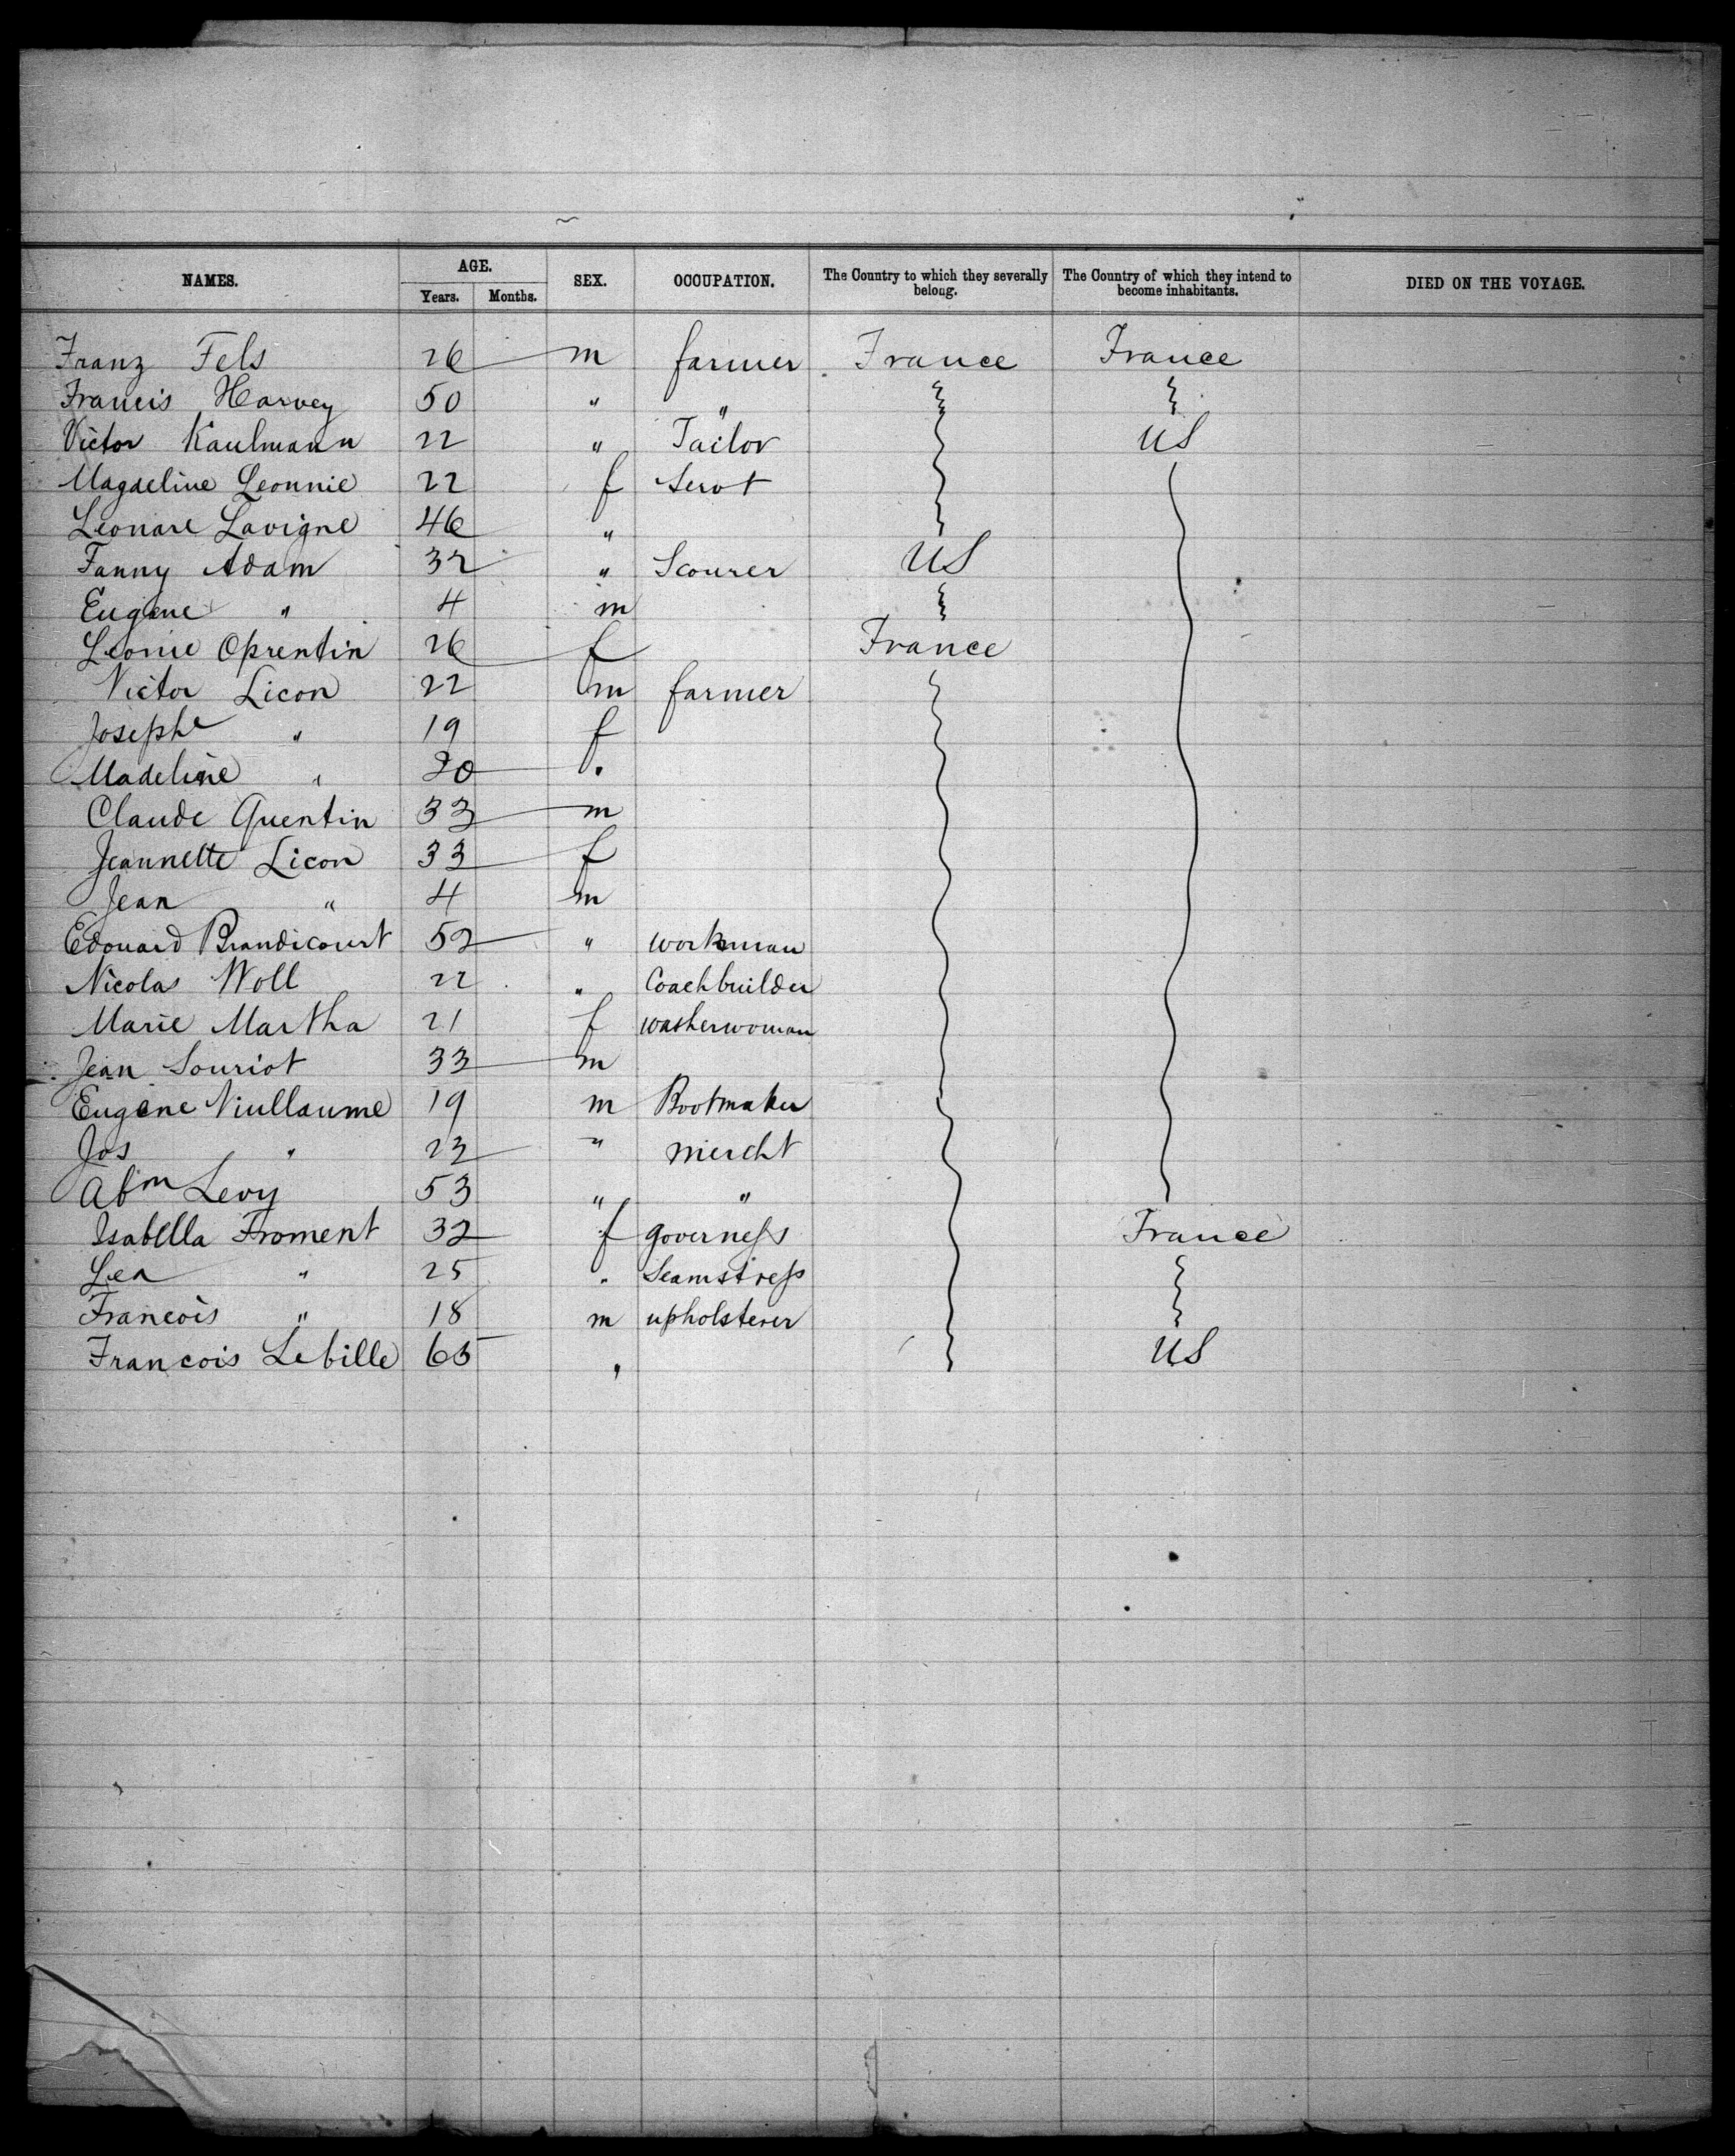 NAMES. AGE. SEX. OCCUPATION. The Country to which they severally belong. The Country of which they intend to become inhabitants. DIED ON THE VOYAGE.
Years. Months.
Franz Fels 26 m farmer France France
Francis Harvey 50 " "
Victor Kaulmann 22 " Tailor US
Magdeline Leonnie 22 f Servt
Leonare Lavigne 46 "
Fanny Adam 32 " Scourer US
Eugene " 4 m
Leonie Oprentin 26 f France
Victor Licon 22 m farmer
Josephe " 19 f
Madeline " 20 "
Claude Quentin 33 m
Jeannette Licon 33 f
Jean " 4 m
Edouard Brandicourt 52 " workman
Nicolas Woll 22 " Coachbuilder
Marie Martha 21 f washerwoman
Jean Souriot 33 m
Eugene Viullaume 19 m Bootmaker
Jos " 23 " mercht
Abm Levy 53 " "
Isabella Froment 32 f governess France
Lea " 25 " Seamstress
Francois " 18 m upholsterer
Francois Lebille 65 " US